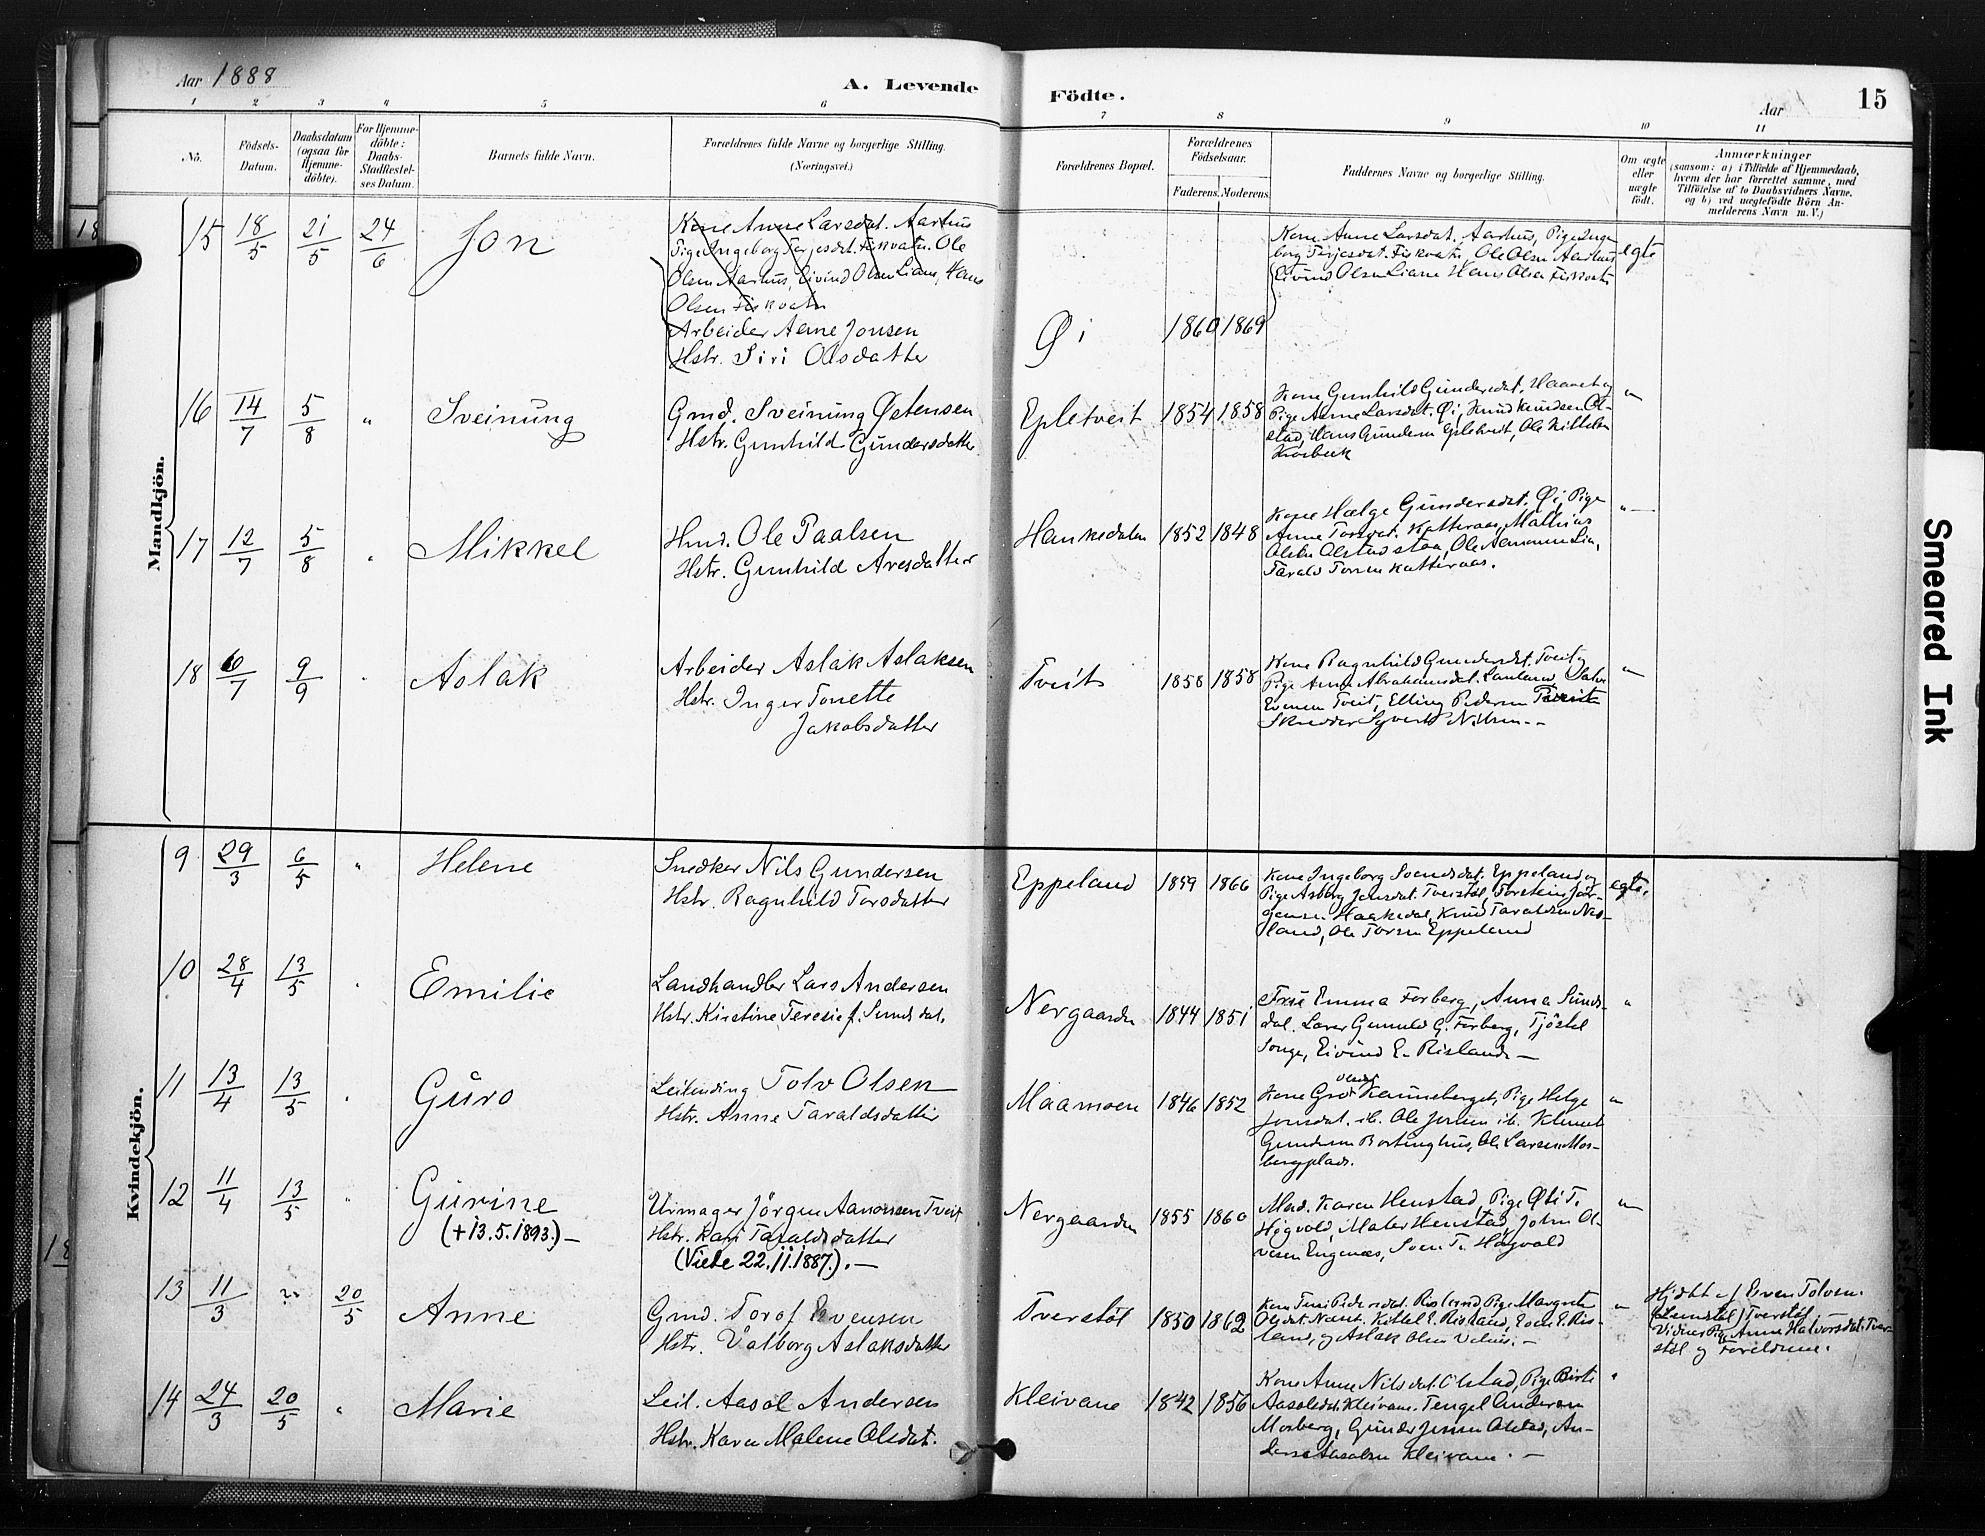 Aar 1888
A. Levende Födte.
Aar
15
1 2 3 4 5 6 7 8 9 10 11
No.
Födsels-Datum.
Daabsdatum (ogsaa for Hjemme-döbte).
For Hjemme-döbte: Daabs-Stadfæstel-ses Datum.
Barnets fulde Navn.
Forældrenes fulde Navne og borgerlige Stilling.
(Næringsvei.)
Forældrenes Bopæl.
Forældrenes Födselsaar.
Faderens. Moderens.
Faddernes Navne og borgerlige Stilling.
Om ægte eller uægte födt.
Anmærkninger
(saasom: a) i Tilfælde af Hjemmedaab,
hvem der har forrettet samme, med
Tilföielse af to Daabsvidners Navne,
og b) ved uægtefödte Börn An-
melderens Navn m. V.)
Mandkjön.
15 18/5 21/5 24/6 Jon
Kone Anne Larsdat. Aarhus
Pige Ingeborg Terjesdat. Fiskvatn. Ole
Olsen Aarhus, Eivind Olsen Liane, Hans
Olsen Fiskvatn
Arbeider Aane Jonsen
Hstr. Siri Olsdatter
Øi 1860 1869
Kone Anne Larsdat. Aarhus, Pige Inge
borg Terjesdat. Fiskvatn, Ole Olsen Aarhus
Eivind Olsen Liane Hans Olsen Fiskvatn
egte
16 14/7 5/8 " Sveinung
Gmd. Sveinung Østensen
Hstr. Gunhild Gundersdatter
Epletveit 1854 1858
Kone Gunhild Gundersdat. Haavet og
Pige Aane Larsdat. Øi, Knud Knudsen Ol-
stad, Hans Gundersen Epletveit, Ole Kittelsen
"
17 12/7 5/8 " Mikkel
Hmd. Ole Paalsen
Hstr. Gunhild Aresdatter
Hankedalen 1852 1848
Kone Hælge Gundersdat. Øi, Pige
Anne Torsdat. Katteraas, Mathias
Olsen Olstadstaa, Ole Aamonsen Lia,
Tarald Torsen Katteraas.
"
18 6/7 9/9 " Aslak
Arbeider Aslak Aslaksen
Hstr. Inger Tonette
Jakobsdatter
Tveit 1858 1858
Kone Ragnhild Gundersdat. Tveit og
Pige Anne Abrahamsdat. Lauland
Evensen Tveit, Elling Pedersen Tveit
Skrædder Syvert Nilsen. -
"
Kvindekjön.
9 29/3 6/5 " Helene
Snedker Nils Gundersen
Hstr. Ragnhild Torsdatter
Eppeland 1859 1866
Kone Ingeborg Svendsdat. Eppeland og
Pige Asborg Jensdat. Tverstøl, Torstein Jør-
gensen Haakedal, Knud Taraldsen Nes-
land, Ole Torsen Eppeland
egte.
10 28/4 13/5 " Emilie
Landhandler Lars Andersen
Hstr. Kirstine Teresie f. Sundsdal.
Nergaarden 1844 1851
Frue Emma Forberg, Anna Sunds-
dal. Lærer Gunuld G. Forberg, Tjöstel
Songe, Eivind E. Risland. -
"
11 13/4 13/5 " Guro
Leilending Tolv Olsen
Hstr. Anne Taraldsdatter
Maamoen 1846 1852
Olsdat
Kone Gro Kauneberget, Pige Helge
Jonsdat. ib. Ole Jensen ib. Klemet
Gundersen Bortinghus, Ole Larsen Mos-
bergplads.
"
12 11/4 13/5 " Gurine
(+ 13.5.1893.) -
Urmager Jörgen Aanonsen Tveit
Hstr. Kari Taraldsdatter
(Viede 22.11.1887.). -
Nergaarden 1855 1860
Mad. Karen Henstad, Pige Øli T.
Høgvold, Maler Henstad, John Ol-
vesen Engenæs, Sven T. Høgvold
"
13 11/3 " 20/5 Anne
Gmd. Torof Evensen
Hstr. Valborg Aslaksdatter
Tverstöl 1850 1862
Kone Turi Pedersdat. Risland, Pige Margrete
Olsdat. Næset. Kittel E. Risland, Even E. Ris-
land, og Aslak Olsen Vehus. -
"
Hjdbt af Even Tolvsen.
(Lemstöl) Tverstöl. -
Vidner Pige Anne Halvorsdat. Tver-
støl og Foreldrene.
14 24/3 20/5 " Marie
Leil. Aasol Andersen
Hstr. Karen Malene Olsdat.
Kleivane 1842 1856
Kone Anne Nilsdat. Olstad, Pige Birte
Aasolsdat. Kleivane. Tengel Andersen
Mosberg, Gunder Jensen Olstad, An-
ders Aasolsen Kleivane. -
"
Smeared Ink